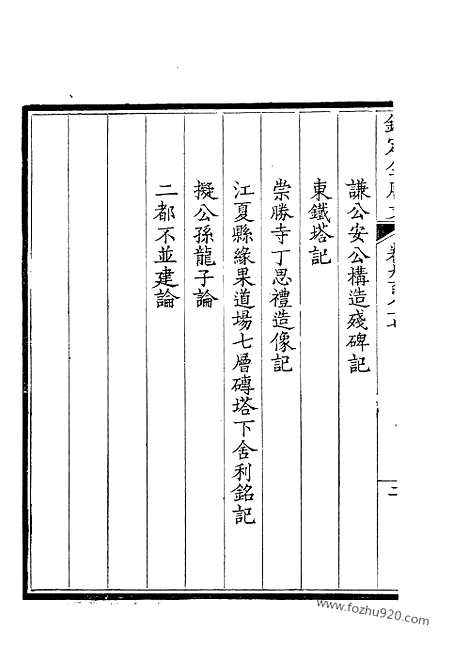 謙公安公構造殘碑記
東鐵塔記
崇勝寺丁思禮造像記
江夏縣緣果道場七層磚塔下舍利銘記
擬公孫龍子論
二都不並建論
www.fozhu920.com